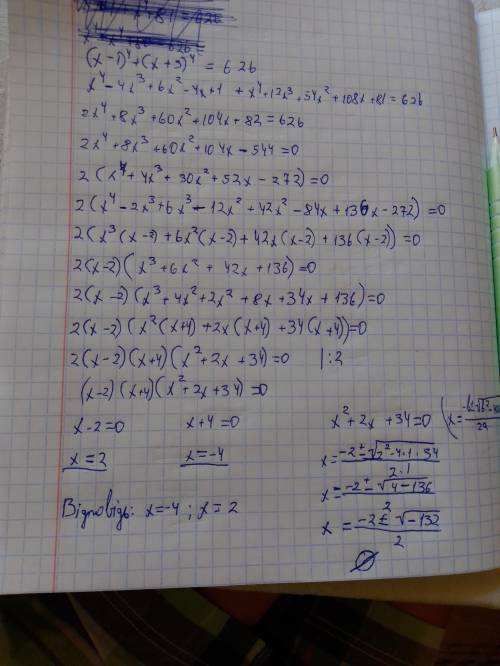 (x-1)⁴+(x+3)⁴ = 626
x⁴-4x³+6x²-4x+1 + x⁴+12x³+54x²+108x+81=626
2x⁴+8x³+60x²+104x+82=626
2x⁴+8x³+60x²+104x-544=0
2(x⁴+4x³+30x²+52x-272)=0
2(x⁴-2x³+6x³-12x²+42x²-84x+136x-272)=0
2(x³(x-2)+6x²(x-2)+42x(x-2)+136(x-2))=0
2(x-2)(x³+6x²+42x+136)=0
2(x-2)(x³+4x²+2x²+8x+34x+136)=0
2(x-2)(x²(x+4)+2x(x+4)+34(x+4))=0
2(x-2)(x+4)(x²+2x+34)=0 |:2
(x-2)(x+4)(x²+2x+34)=0
x-2=0 x+4=0 x²+2x+34=0
x=2 x=-4 x=(-2±√(2²-4·1·34))/(2·1)
x=(-2±√(4-136))/2
Відповідь: x=-4; x=2 x=(-2±√(-132))/2
∅